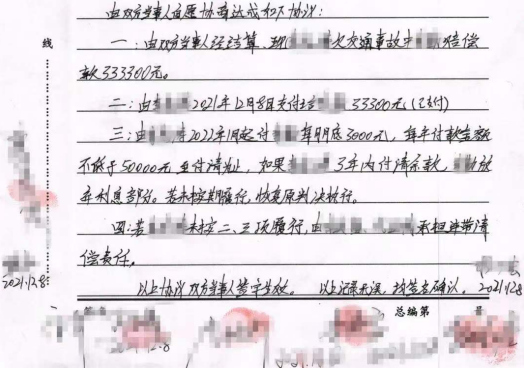 由双方当事人自愿协商达成和下协议：
一：由双方当事人经结算，现 欠交通事故中 赔偿
款333300元。
二：由 2021年12月8日支付给 33300元（已支付）
三：由 2022年1月起付 每月底3000元，每年付款金额
不低于50000元至付清为止，如果 3年内付清余款， 放
弃利息部分。若未按期履行，恢复原判决执行。
四：若 未按二、三项履行，由 承担连带清
偿责任。
以上协议双方当事人签字生效。 以上记录无误，均签名确认。
线
2021.12.8
2021.12.8
总编第 号